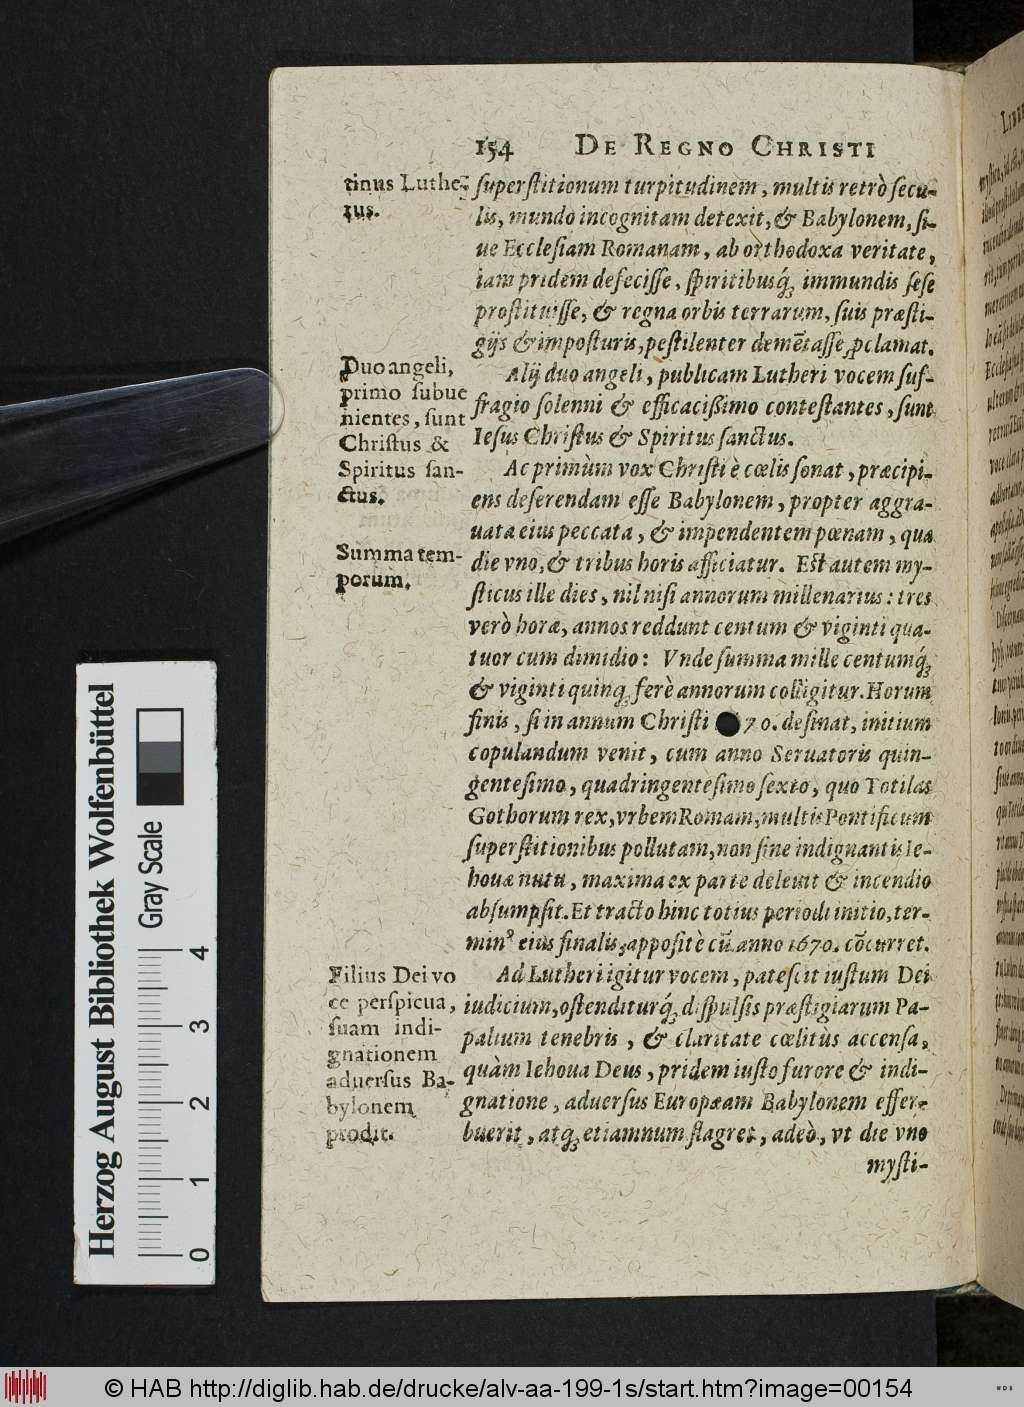 154 DE REGNO CHRISTI
tinus Luthe-
rus.
superstitionum turpitudinem, multis retrò secu-
lis, mundo incognitam detexit, & Babylonem, si-
ue Ecclesiam Romanam, ab orthodoxa veritate,
iam pridem defecisse, spiritibusq́; immundis sese
prostituisse, & regna orbis terrarum, suis præsti-
gijs & imposturis, pestilenter demẽtasse, ꝓclamat.
Duo angeli,
primo subue
nientes, sunt
Christus &
Spiritus san-
ctus.
Alij duo angeli, publicam Lutheri vocem suf-
fragio solenni & efficacißimo contestantes, sunt
Iesus Christus & Spiritus sanctus.
Ac primùm vox Christi è cœlis sonat, præcipi-
ens deserendam esse Babylonem, propter aggra-
uata eius peccata, & impendentem pœnam, qua
Summa tem-
porum.
die vno, & tribus horis afficiatur. Est autem my-
sticus ille dies, nil nisi annorum millenarius: tres
verò horæ, annos reddunt centum & viginti qua-
tuor cum dimidio: Vnde summa mille centumq́;
& viginti quinq; ferè annorum colligitur. Horum
finis, si in annum Christi 70. desinat, initium
copulandum venit, cum anno Seruatoris quin-
gentesimo, quadringentesimo sexto, quo Totilas
Gothorum rex, vrbem Romam, multis Pontificum
superstitionibus pollutam, non sine indignantis Ie-
houæ nutu, maxima ex parte deleuit & incendio
absumpsit. Et tracto hinc totius periodi initio, ter-
minꝰ eius finalis, appositè cũ anno 1670. cõcurret.
Filius Dei vo
ce perspicua,
suam indi-
gnationem
aduersus Ba-
bylonem
prodit.
Ad Lutheri igitur vocem, patescit iustum Dei
iudicium, ostenditurq́; dispulsis præstigiarum Pa-
palium tenebris, & claritate cœlitùs accensa,
quàm Iehoua Deus, pridem iusto furore & indi-
gnatione, aduersus Europæam Babylonem effer-
buerit, atq; etiamnum flagret, adeò, vt die vno
mysti-
Herzog August Bibliothek Wolfenbüttel
Gray Scale
0 1 2 3 4
© HAB http://diglib.hab.de/drucke/alv-aa-199-1s/start.htm?image=00154